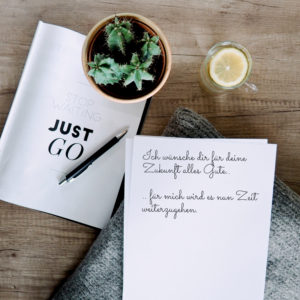 STOP
WAITING
JUST
GO
Ich wünsche dir für deine
Zukunft alles Gute..
.. für mich wird es nun Zeit
weiterzugehen.